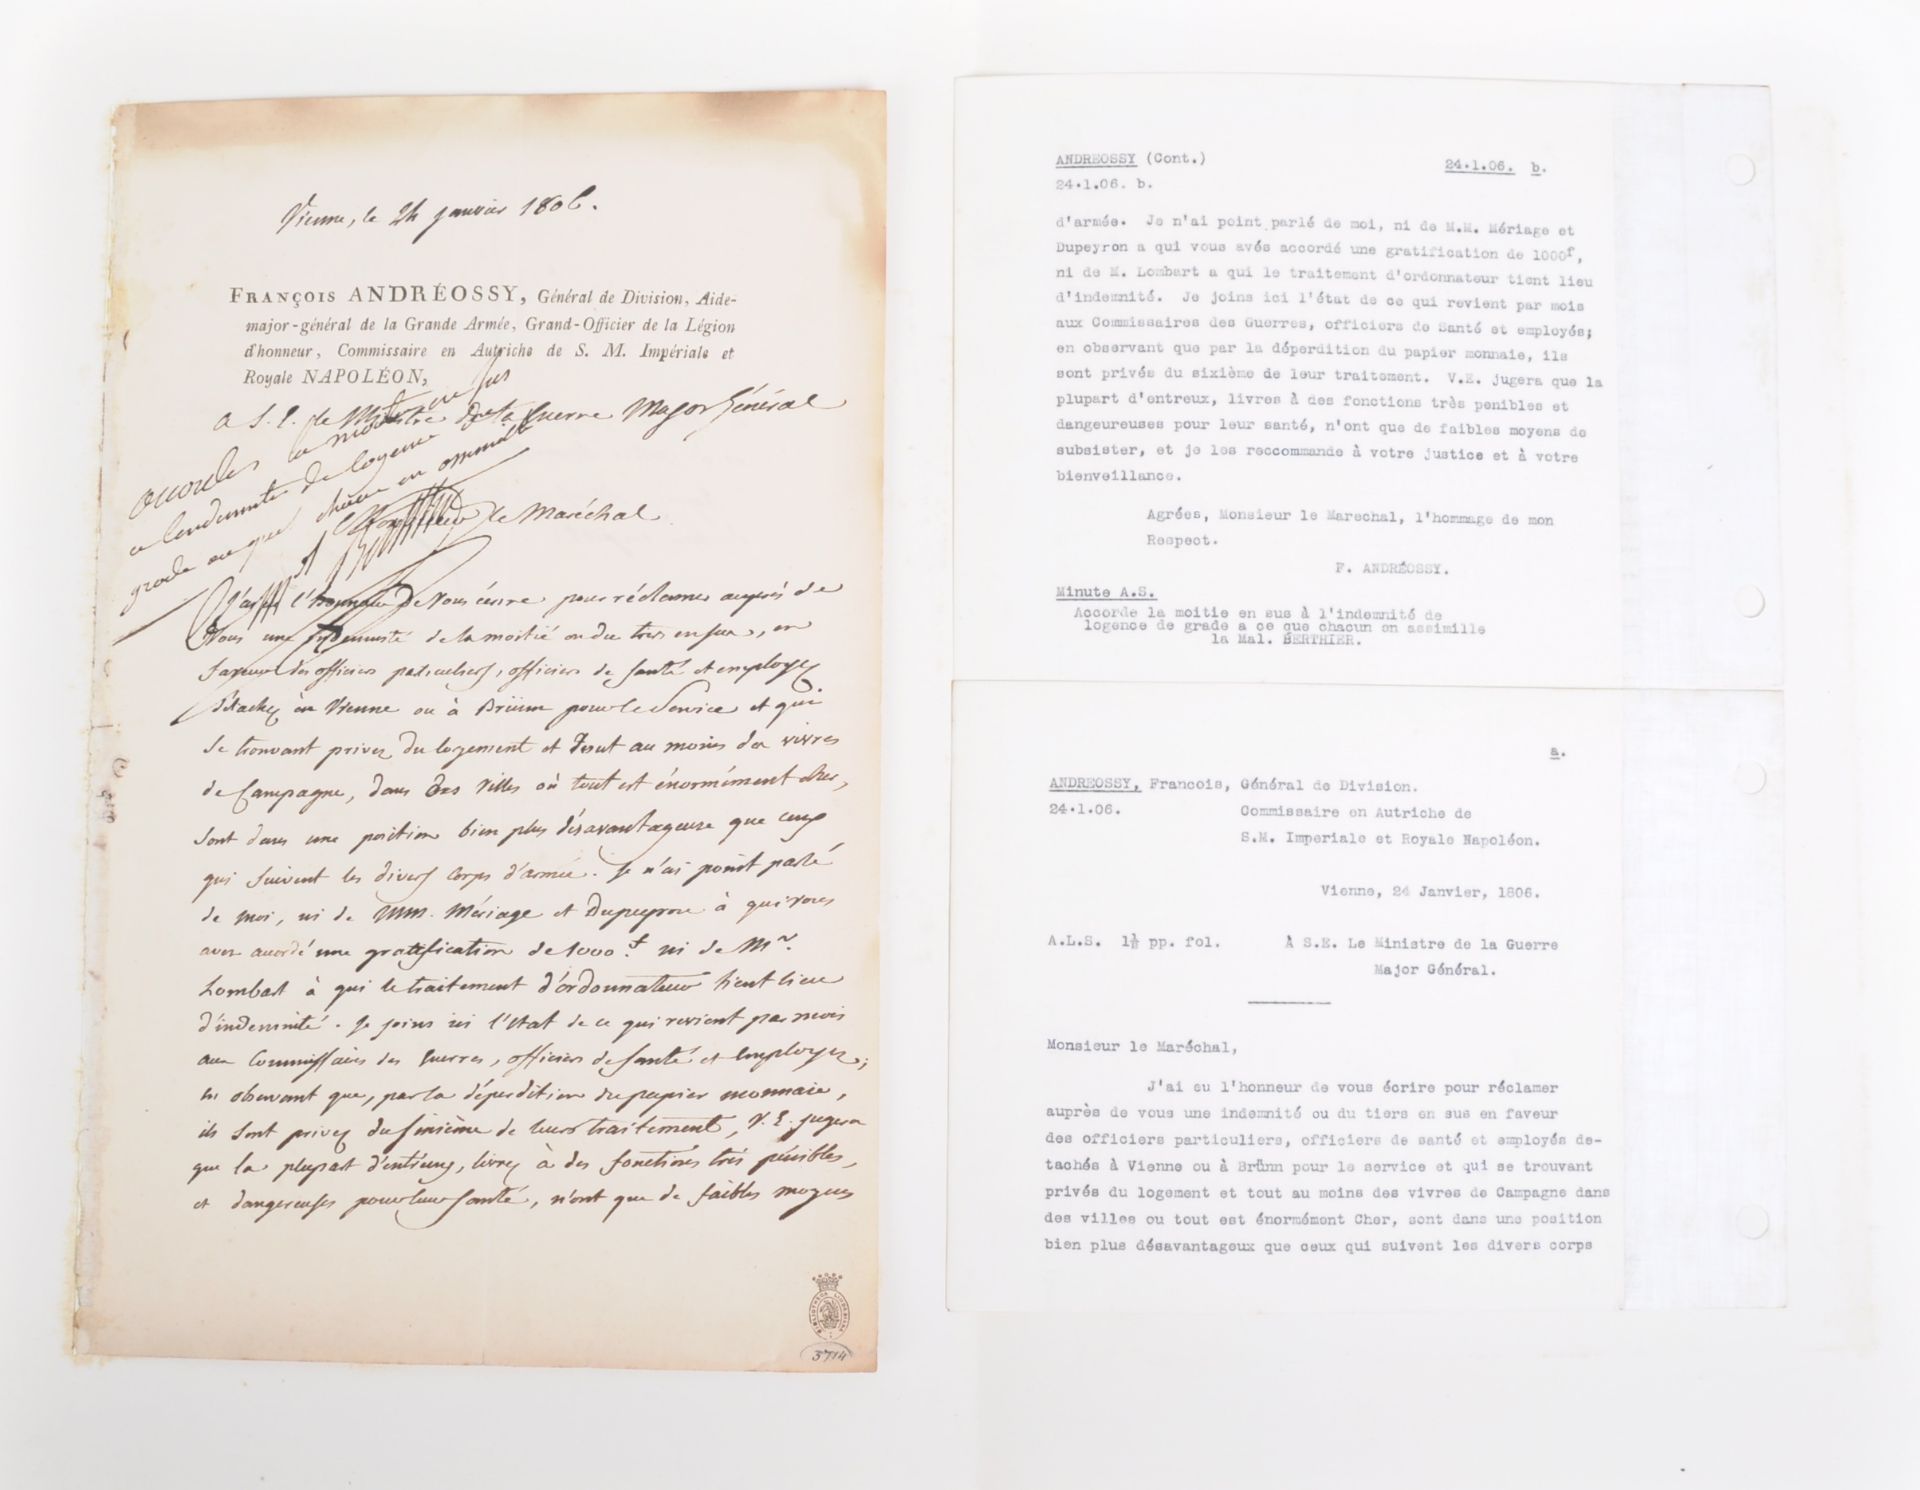 Vienne, le 24 janvier 1806.
FRANÇOIS ANDRÉOSSY, Général de Division, Aide-
major-général de la Grande Armée, Grand-Officier de la Légion
d'honneur, Commissaire en Autriche de S. M. Impériale et
Royale NAPOLÉON,
a S. E. le Ministre de la Guerre Major Général
accordé la moitié en sus
a l'indemnité de logement de
grade ou que chacun on assimille
Monsieur le Maréchal
J'ai eu l'honneur de vous écrire pour réclamer auprès de
Vous une indemnité de la moitié ou du tiers en sus, en
faveur des officiers particuliers, officiers de santé et employez
détachez à Vienne ou à Brünn pour le Service et qui
se trouvant privez du logement et tout au moins des vivres
de Campagne, dans des villes où tout est énormément cher,
sont dans une position bien plus désavantageuse que ceux
qui suivent les divers corps d'armée. Je n'ai point parlé
de moi, ni de MM. Mériage et Dupeyron à qui vous
avez accordé une gratification de 1000 f. ni de Mr.
Lombart à qui le traitement d'ordonnateur tient lieu
d'indemnité. Je joins ici l'état de ce qui revient par mois
aux Commissaires des Guerres, officiers de santé et employez;
en observant que, par la déperdition du papier monnaie,
ils sont privez du sixième de leur traitement, V. E. jugera
que la plupart d'entreux, livrez à des fonctions très pénibles,
et dangereuses pour leur santé, n'ont que de faibles moyens
BIBLIOTHECA LINDESIANA
3714
ANDREOSSY (Cont.)
24.1.06. b.
24.1.06. b.
d'armée. Je n'ai point parlé de moi, ni de M.M. Mériage et
Dupeyron a qui vous avés accordé une gratification de 1000f,
ni de M. Lombart a qui le traitement d'ordonnateur tient lieu
d'indemnité. Je joins ici l'état de ce qui revient par mois
aux Commissaires des Guerres, officiers de Santé et employés;
en observant que par la déperdition du papier monnaie, ils
sont privés du sixième de leur traitement. V.E. jugera que la
plupart d'entreux, livres à des fonctions très penibles et
dangeureuses pour leur santé, n'ont que de faibles moyens de
subsister, et je les reccommande à votre justice et à votre
bienveillance.
Agrées, Monsieur le Marechal, l'hommage de mon
Respect.
F. ANDRÉOSSY.
Minute A.S.
Accorde la moitie en sus à l'indemnité de
logence de grade a ce que chacun on assimille
la Mal. BERTHIER.
a.
ANDREOSSY, Francois, Général de Division.
24.1.06. Commissaire en Autriche de
S.M. Imperiale et Royale Napoléon.
Vienne, 24 Janvier, 1806.
A.L.S. 1½ pp. fol. À S.E. Le Ministre de la Guerre
Major Général.
Monsieur le Maréchal,
J'ai eu l'honneur de vous écrire pour réclamer
auprès de vous une indemnité ou du tiers en sus en faveur
des officiers particuliers, officiers de santé et employés de-
tachés à Vienne ou à Brünn pour le service et qui se trouvant
privés du logement et tout au moins des vivres de Campagne dans
des villes ou tout est énormément Cher, sont dans une position
bien plus désavantageux que ceux qui suivent les divers corps